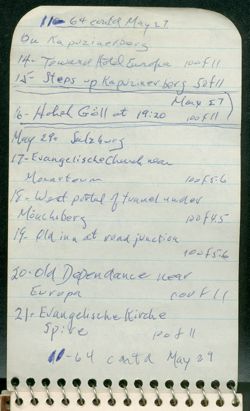 11-64 contd May 27
On Kapuzinerberg
14- Toward Hotel Europa 100 f 11
15- Steps up Kapuzinerberg 50 f 11
May 27
16- Hotel Göll at 19:20 100 f 11
May 29- Salzburg
17- Evangelische Church near
100 f 5.6
18- West portal of tunnel under
Mönchsberg 100 f 4.5
19- Old inn at road junction
100 f 5.6
20- Old Dependance near
Europa 100 f 11
21- Evangelische Kirche
Spire f 11
11-64 contd May 29